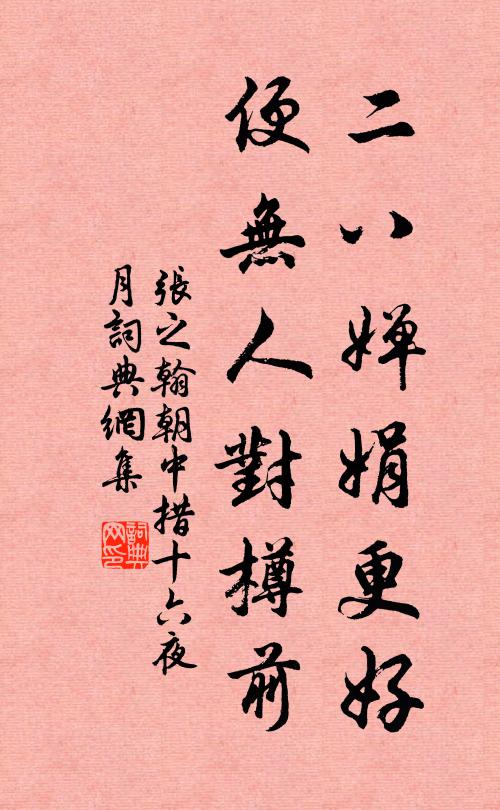 二八嬋娟更好
便無人對樽前
張之翰朝中措十六夜
月詞典網集
詞典网印